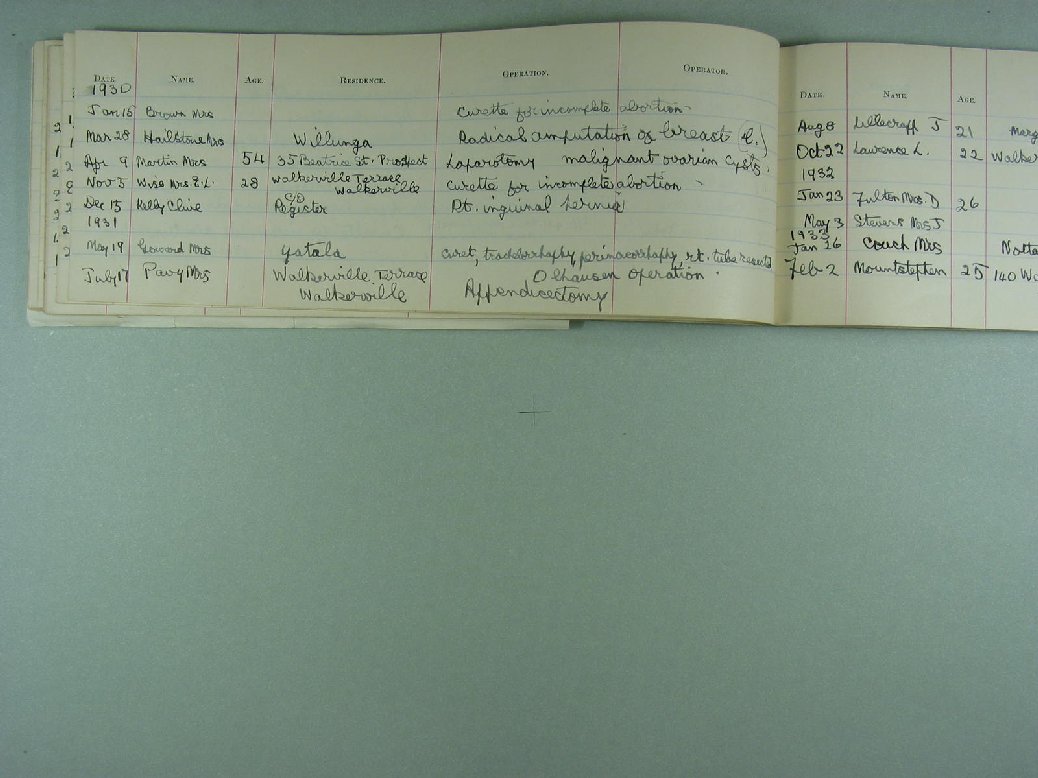 DATE. NAME. AGE. RESIDENCE. OPERATION. OPERATOR.
1930
Jan 15 Brown Mrs Curette for incomplete abortion
Mar 28 Hailstone Mrs Willunga Radical amputation of breast (L.)
Apr 9 Martin Mrs 54 35 Beatrice St. Prospect Laparotomy malignant ovarian cysts.
Nov 3 Wise Mrs E.L. 28 Walkerville Terrace Walkerville Curette for incomplete abortion
Dec 15 Kelly Clive C/o Register Rt. inguinal hernia
1931
May 19 Mrs Yatala curet, perinaeorrhaphy, rt. tube
Olhausen operation
July 17 Pavy Mrs Walkerville Terrace Appendicectomy
Walkerville
DATE. NAME. AGE.
Aug 8 J 21
Oct 22 Lawrence L. 22 Walker
1932
Jan 23 Fulton Mrs. D 26
May 3 Stevens Mrs J
1933
Jan 26 Couch Mrs
Feb 2 Mountstephen 25 140 Wa